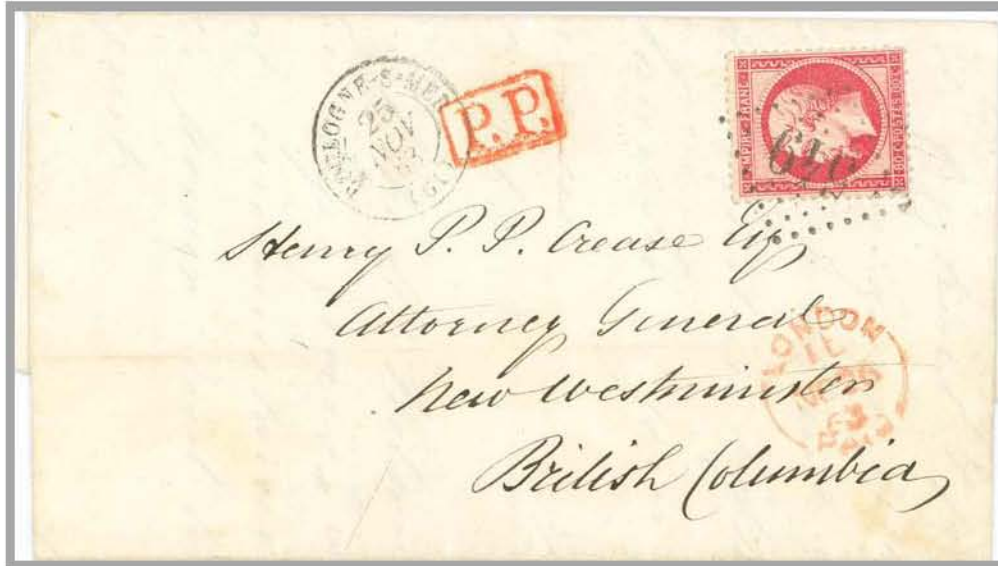 BOULOGNE-S-MER
25
NOV
63
(61)
P.P.
EMPIRE FRANC
80 C POSTES 80 C
Henry P. P. Crease Esq
Attorney General
New Westminster
British Columbia
LONDON
63
PAID